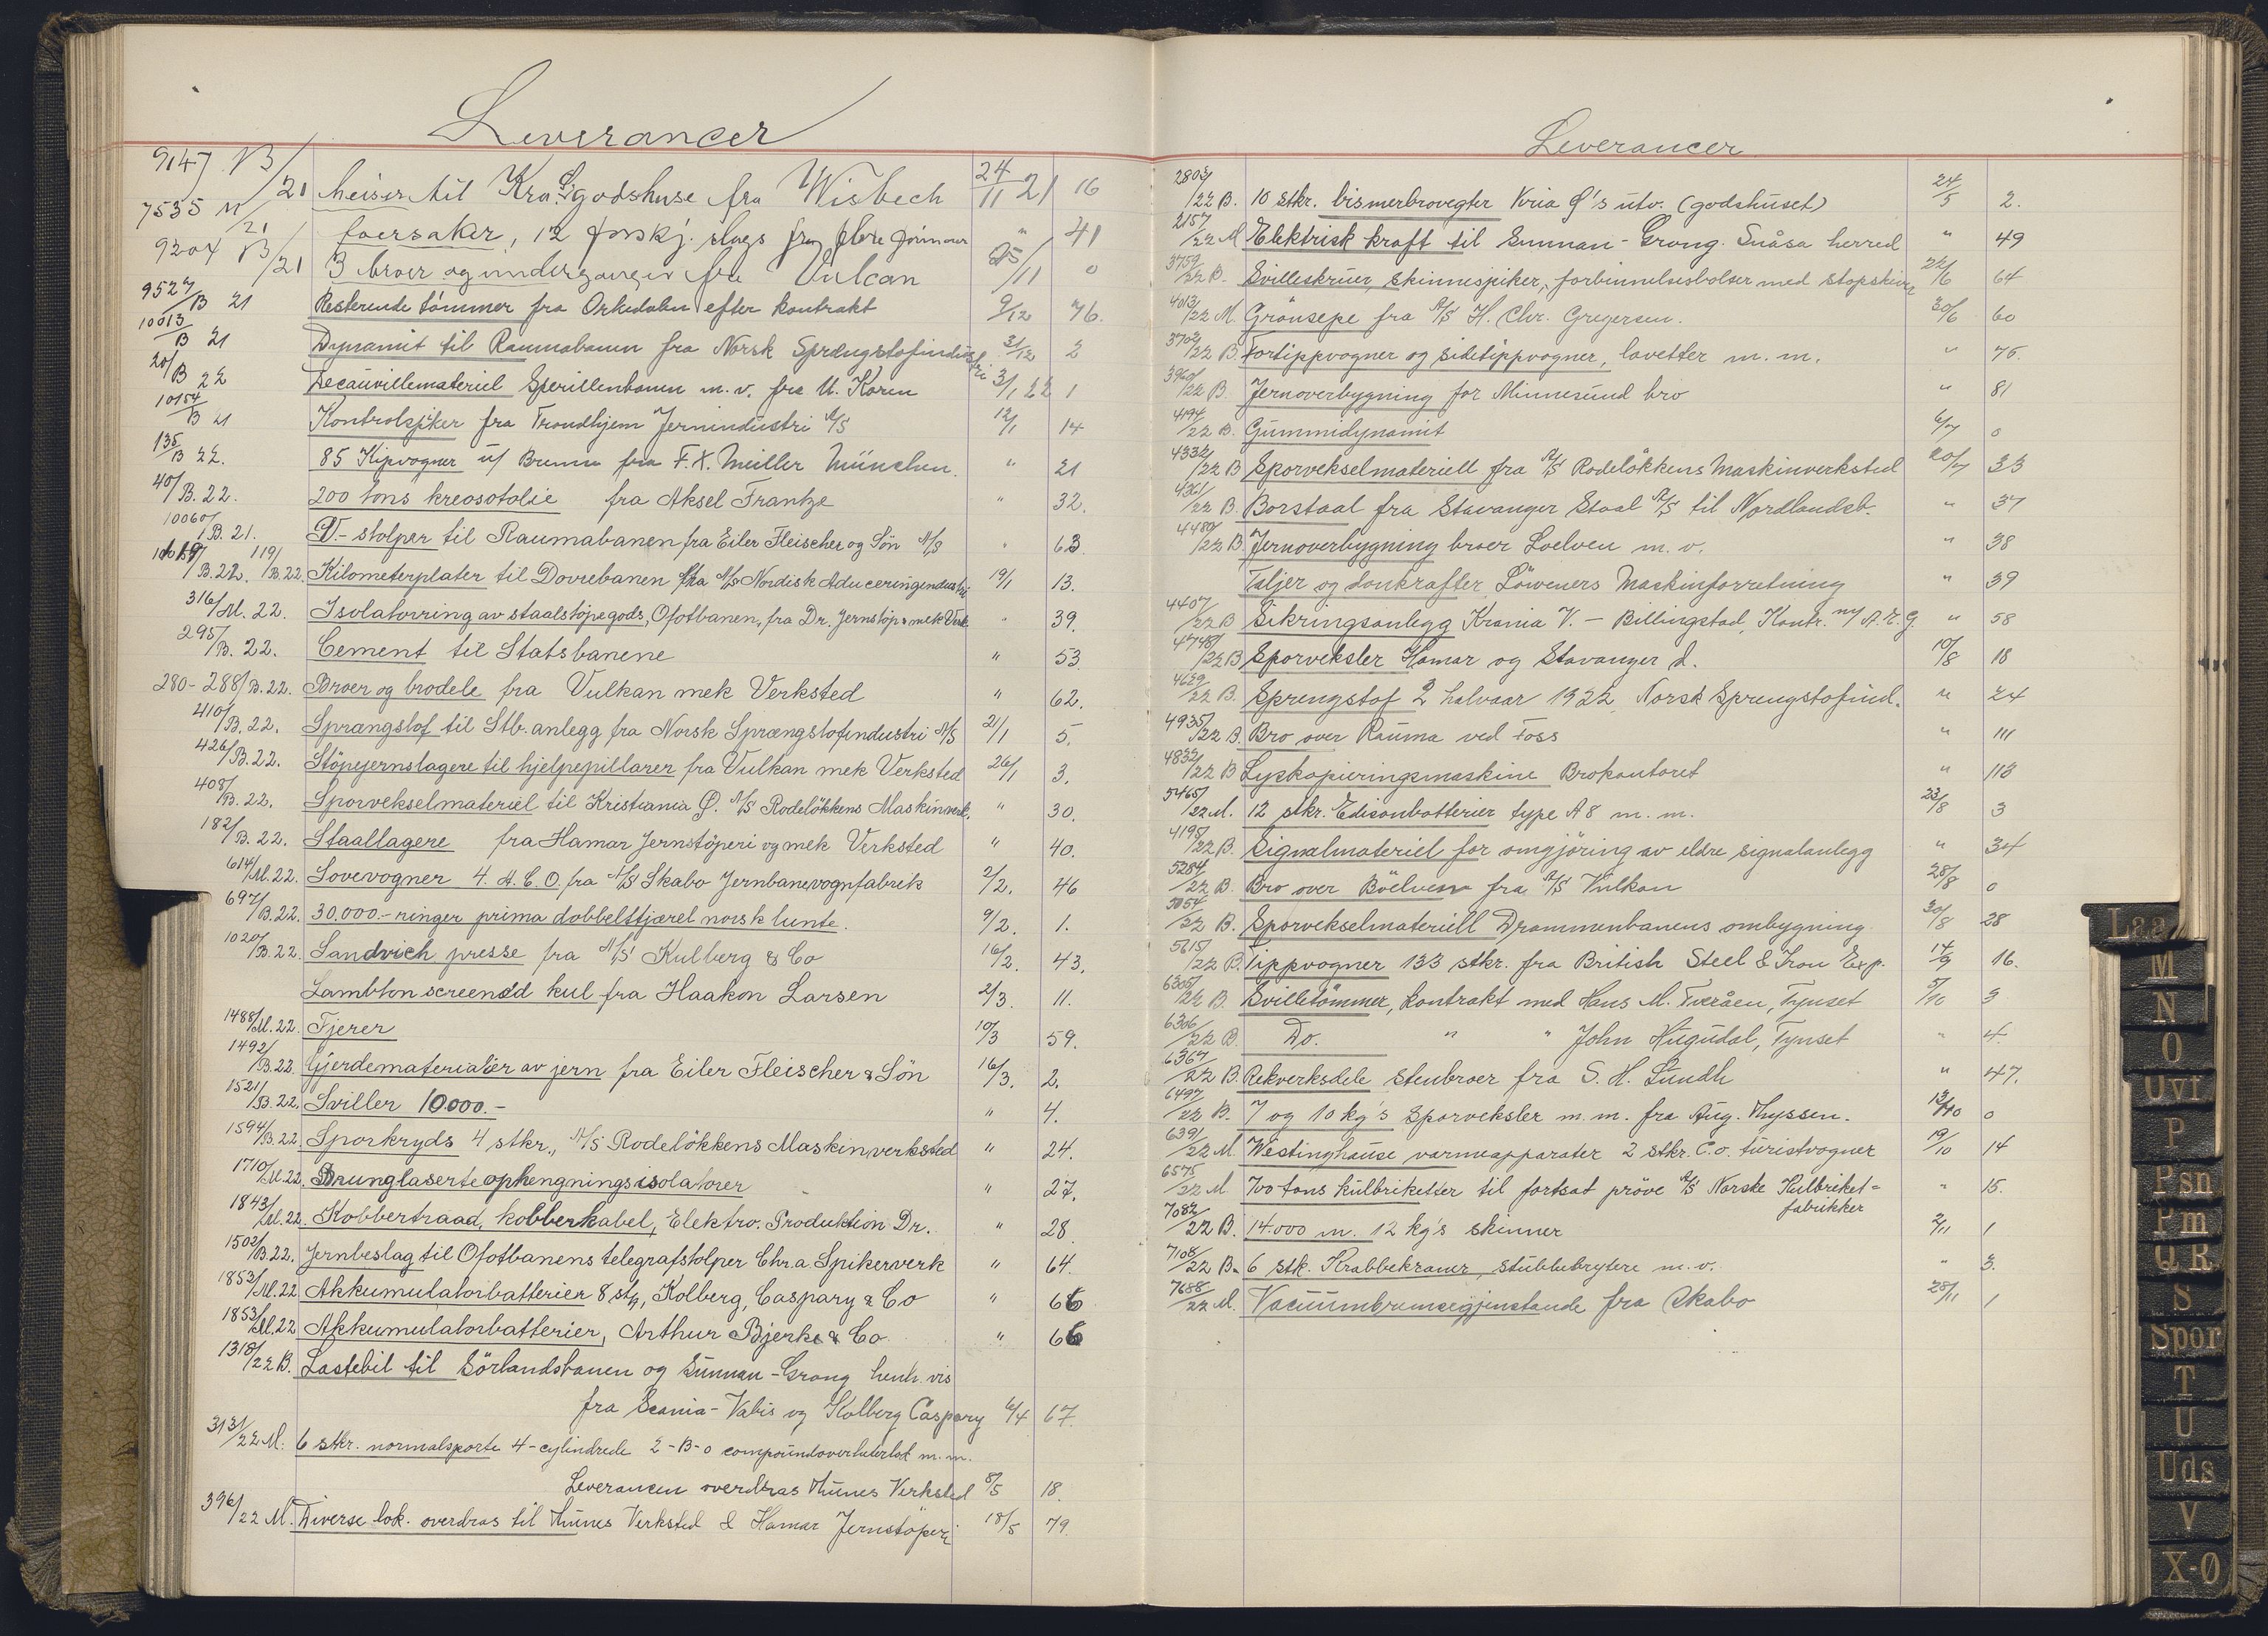 Leverancer
9147 B/21 heiser til Kra. Ø godshuse fra Wisbech 24/11 21 16
7535 M/21 12 forskj. slags fra flere " 41
9204 B/21 3 broer og underganger fra Vulcan 25/11 0
9527/B 21 Resterende tömmer fra Orkedalen efter kontrakt 9/12 76.
10013/B 21 Dynamit til Raumabanen fra Norsk Sprængstofindustri 3/12 2
20/B 22 Decauvillemateriel Sperillenbanen m. v. fra U. Koren 3/1 22 1
10154/B 21 fra Trondhjem Jernindustri A/S 12/1 14
135/B 22. 85 Kipvogner fra F. X. Meiller München. " 21
40/B. 22. 200 tons kreosotolie fra Aksel Frantze " 32.
10060/B. 21. V.-stolper til Raumabanen fra Eiler Fleischer og Sön A/S " 63
/B. 22. 119/B. 22. Kilometerplater til Dovrebanen fra A/S Nordisk Aduceringindustri 19/1 13.
316/M. 22. Isolatorring av staalstöpegods, Ofotbanen, fra Dr. Jernstöp & mek Verk. " 39.
295/B. 22. Cement til Statsbanene " 53
280-288/B. 22. Broer og brodele fra Vulkan mek Verksted " 62.
410/B. 22. Sprængstof til Stb. anlegg fra Norsk Sprængstofindustri A/S 21/1 5.
426/B. 22. Stöpejernslagere til hjelpepillarer fra Vulkan mek Verksted 26/1 3.
408/B. 22. Sporvekselmateriel til Kristiania Ø. A/S Rodelökkens Maskinverk. " 30.
182/B. 22. Staallagere fra Hamar Jernstöperi og mek Verksted " 40.
614/M. 22. Sovevogner 4. A. C. O. fra A/S Skabo Jernbanevognfabrik 2/2. 46
697/B. 22. 30,000.- ringer prima dobbelttjæret norsk lunte. 9/2. 1.
1020/B. 22. Sandvich presse fra A/S Kulberg & Co 16/2. 43.
Lambton screened kul fra Haakon Larsen 2/3. 11.
1488/M. 22. Fjerer 10/3 59.
1492/B. 22. Gjerdematerialer av jern fra Eiler Fleischer & Sön 16/3. 2.
1521/B. 22. Sviller 10.000.- " 4.
1594/B. 22. Sporkryds 4 stkr., A/S Rodelökkens Maskinverksted " 24.
1710/M. 22. Brunglaserte ophengningsisolatorer " 27.
1843/M. 22. Kobbertraad, kobberkabel, Elektro. Produktion Dr. " 28
1502/B. 22. Jernbeslag til Ofotbanens telegrafstolper Chr.a Spikerverk " 64.
1853/M. 22 Akkumulatorbatterier 8 stk, Kolberg, Caspary & Co " 66
1853/M. 22 Akkumulatorbatterier, Arthur Bjerke & Co " 66
1318/22 B. Lastebil til Sörlandsbanen og Sunnan-Grong henh. vis
fra Scania-Vabis og Kolberg Caspary 6/4 67.
3131/22 M. 6 stkr. normalsporte 4-cylindrede 2-B-0 compoundoverheterlok m. m.
Leverancen overdras Thunes Verksted 8/5 18.
396/22 M. Diverse lok. overdras til Thunes Verksted & Hamar Jernstöperi 18/5 79.
Leverancer
2803/22 B. 10 stkr. bismerbrovegter Kria Ø's utv. (godshuset) 24/5 2.
2157/22 M Elektrisk kraft til Sunnan-Grong. Snåsa herred " 49
3759/22 B. Svilleskruer, skinnespiker, forbinnelsesbolser med stopskiver 22/6 64
4013/22 M. Grönsepe fra A/S H. Chr. Gregersen. 30/6 60
3702/22 B. Fortippvogner og sidetippvogner, lavetter m. m. " 75.
3960/22 B. Jernoverbygning for Minnesund bro " 81
4194/22 B. Gummidynamit 6/7 0
4332/22 B Sporvekselmateriell fra A/S Rodelökkens Maskinverksted 20/7 33
4361/22 B. Borstaal fra Stavanger Staal A/S til Nordlandsb. " 37
4480/22 B. Jernoverbygning broer Loelven m. v. " 38
Taljer og donkrafter Löweners Maskinforretning " 39
4407/22 B Sikringsanlegg Krania V. - Billingstad, Kontr. m/ A. E. G. " 58
4748/22 B Sporveksler Hamar og Stavanger d. 10/8 18
4629/22 B. Sprengstof 2 halvaar 1922, Norsk Sprengstofind. " 24
4935/22 B. Bro over Rauma ved Foss " 111
4832/22 B Lyskopieringsmaskine Brokontoret " 113
5465/22 M. 12 stkr. Edisonbatterier type A 8 m. m. 23/8 3
4195/22 B. Signalmateriel for omgjöring av eldre signalanlegg " 34
5284/22 B. Bro over Böelven fra A/S Vulkan 28/8 0
5054/22 B. Sporvekselmateriell Drammenbanens ombygning 30/8 28
5615/22 B. Tippvogner 133 stkr. fra British Steel & Iron Exp. 14/9 16.
6305/22 B. Svilletömmer, kontrakt med Hans M. Tveråen, Tynset 5/10 3
6306/22 B. Do. " " John Hugudal, Tynset " 4
6367/22 B. Rekverksdele stenbroer fra S. H. Lundh " 47.
6497/22 B. 7 og 10 kg's sporveksler m. m. fra Aug. Thyssen. 13/10 0
6391/22 M. Westinghouse varmeapparater 2 stkr. C.o. turistvogner 19/10 14
6575/22 M. 700 tons kulbriketter til fortsat pröve A/S Norske Kulbriket=
fabrikker " 15.
7082/22 B. 14.000 m. 12 kg's skinner 2/11 1
7108/22 B. 6 stk. Krabbekraner, stubbebrytere m. v. " 3.
7688/22 M. Vacuumbremsegjenstande fra Skabo 28/11 1
Laa
M
N
O
Ovf
P
Psn
Pm
Q R
S
Spor
T
U
Uds
V
X-Ø